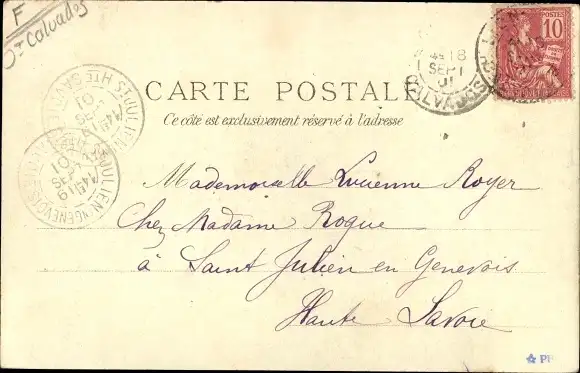 F
Calvados
POSTES
10
18
SEPT
01
CALVADOS
CARTE POSTALE
Ce côté est exclusivement réservé à l'adresse
ST JULIEN EN GENEVOIS
HTE SAVOIE
19
SEPT
01
Mademoiselle Lucienne Royer
Chez Madame Rogue
à Saint Julien en Genevois
Haute Savoie